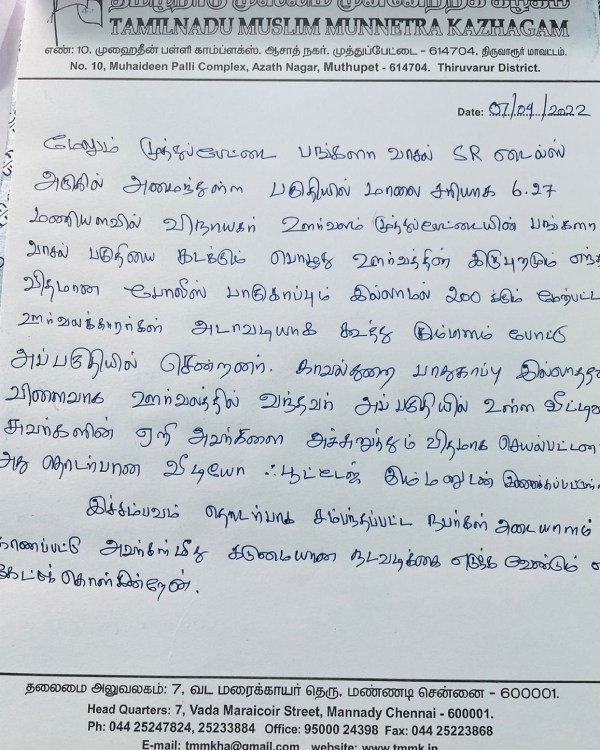 தமிழ்நாடு முஸ்லிம் முன்னேற்றக் கழகம்
TAMILNADU MUSLIM MUNNETRA KAZHAGAM
எண்: 10, முஹைதீன் பள்ளி காம்ப்ளக்ஸ், ஆசாத் நகர், முத்துப்பேட்டை - 614704, திருவாரூர் மாவட்டம்.
No. 10, Muhaideen Palli Complex, Azath Nagar, Muthupet - 614704. Thiruvarur District.
Date: 07/09/2022
மேலும் முத்துப்பேட்டை பங்களா வாசல் SR டைல்ஸ்
அருகில் அமைந்துள்ள பகுதியில் மாலை சரியாக 6.27
மணியளவில் விநாயகர் ஊர்வலம் முத்துப்பேட்டையின் பங்களா
வாசல் பகுதியை கடக்கும் பொழுது ஊர்வத்தின் இருபுறமும் எந்த
விதமான போலீஸ் பாதுகாப்பும் இல்லாமல் 200 க்கும் மேற்பட்ட
ஊர்வலக்காரர்கள் அடாவடியாக கூத்து கும்மாளம் போட்டு
அப்பகுதியில் சென்றனர். காவல்துறை பாதுகாப்பு இல்லாத
விளைவாக ஊர்வலத்தில் வந்தவர் அப்பகுதியில் உள்ள வீட்டின்
சுவர்களின் ஏறி அவர்களை அச்சுறுத்தும் விதமாக செயல்பட்டன
அது தொடர்பான வீடியோ ஃபூட்டேஜ் இம்மனுடன் இணைக்கப்பட்டு
இச்சம்பவம் தொடர்பாக சம்பந்தப்பட்ட நபர்கள் அடையாளம்
காணப்பட்டு அவர்கள் மீது கடுமையான நடவடிக்கை எடுக்க வேண்டும் எ
கேட்டுக் கொள்கின்றேன்.
தலைமை அலுவலகம்: 7, வட மரைக்காயர் தெரு, மண்ணடி சென்னை - 600001.
Head Quarters: 7, Vada Maraicoir Street, Mannady Chennai - 600001.
Ph: 044 25247824, 25233884 Office: 95000 24398 Fax: 044 25223868
E-mail: tmmkhq@gmail.com website: www.tmmk.in